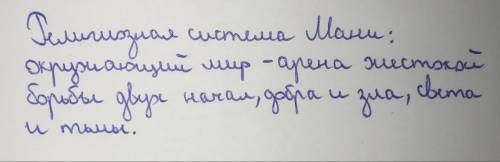 Религиозная система Мани:
окружающий мир - арена жестокой
борьбы двух начал, добра и зла, света
и тьмы.